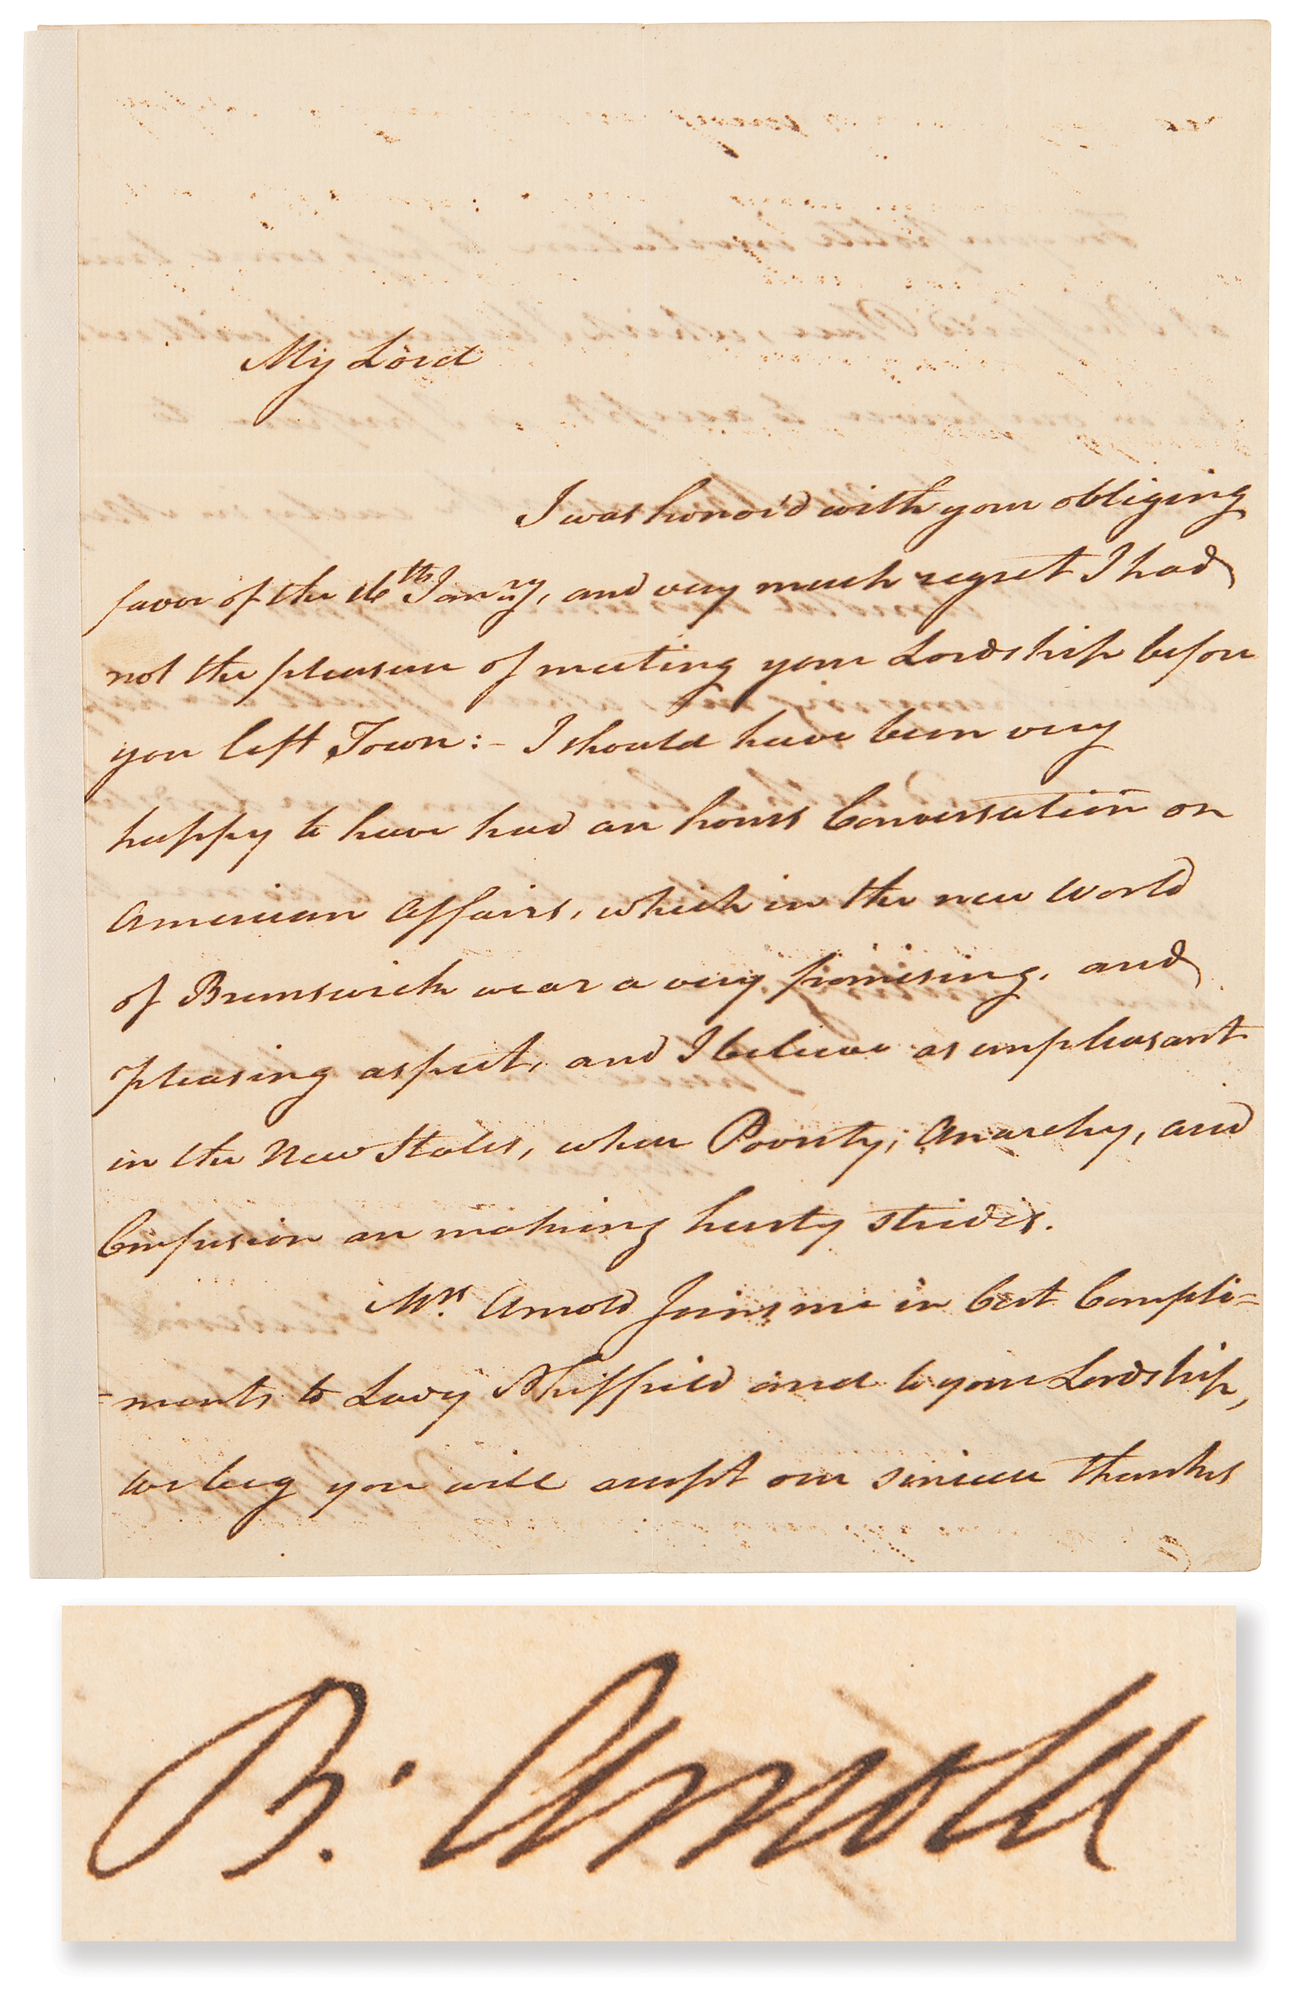 My Lord
I was honor'd with your obliging
favor of the 16th Janry, and very much regret I had
not the pleasure of meeting your Lordship before
you left Town:- I should have been very
happy to have had an hours Conversation on
American Affairs, which in the new World
of Brunswick wear a very promising, and
pleasing aspect, and I believe as unpleasant
in the New States, where Poverty, Anarchy, and
Confusion are making hasty strides.
Mrs Arnold Joins me in best Compli=
=ments to Lady Sheffield and to your Lordship,
we beg you will accept our sincere thanks
B. Arnold